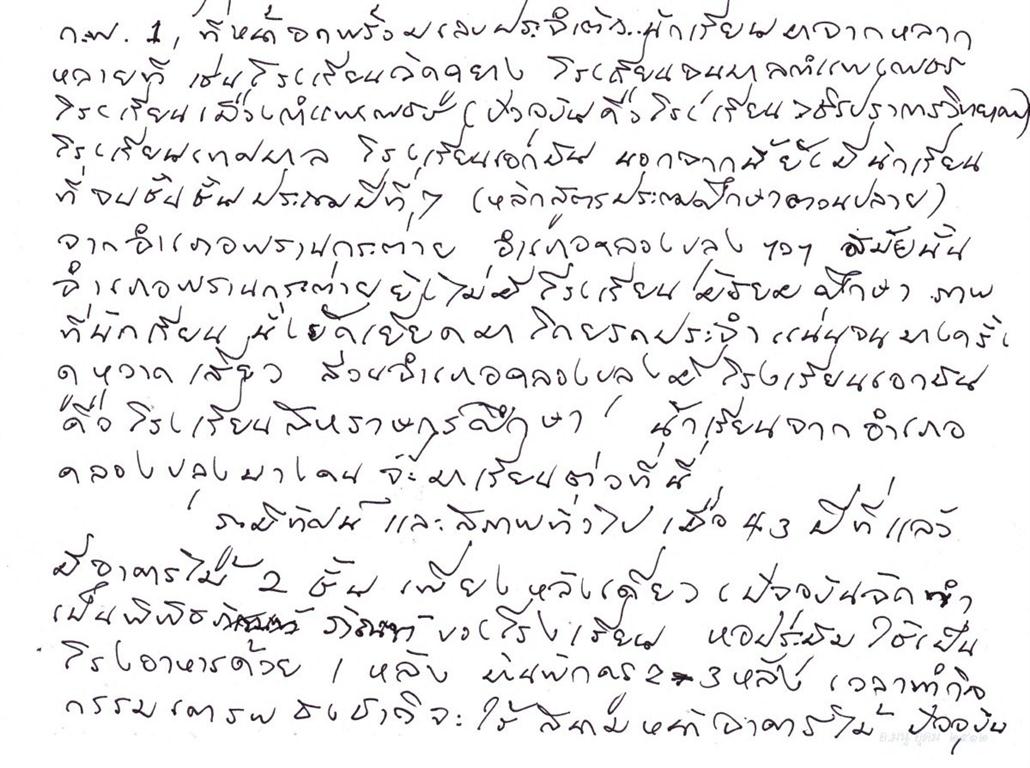 ก.พ. 1, ที่หน้าอกพร้อมเลขประจำตัว..นักเรียนมาจากหลาก
หลายที่ เช่นโรงเรียนวัดคูยาง โรงเรียนอนุบาลกำแพงเพชร
โรงเรียนเมืองกำแพงเพชร (ปัจจุบันคือโรงเรียนวชิรปราการวิทยาคม)
โรงเรียนเทศบาล โรงเรียนเอกชน นอกจากนี้ยังมีนักเรียน
ที่จบชั้นชั้นประถมปีที่ 7 (หลักสูตรประถมศึกษาตอนปลาย)
จากอำเภอพรานกระต่าย อำเภอคลองขลุง ฯลฯ สมัยนั้น
อำเภอพรานกระต่ายยังไม่มีโรงเรียนมัธยมศึกษา ภาพ
ที่นักเรียนนั่งยัดเยียดมาโดยรถประจำ แน่นจนบางครั้ง
ดูหวาดเสียว ส่วนอำเภอคลองขลุงมีโรงเรียนเอกชน
คือโรงเรียนสหราษฎร์ศึกษา นักเรียนจากอำเภอ
คลองขลุงบางคนจะมาเรียนต่อที่นี่
ภูมิทัศน์และสภาพทั่วไป เมื่อ 43 ปีที่แล้ว
มีอาคารไม้ 2 ชั้น เพียงหลังเดียว (ปัจจุบันจัดทำ
เป็นพิพิธภัณฑ์ของโรงเรียน หอประชุม ใช้เป็น
โรงอาหารด้วย 1 หลัง บ้านพักครู 2-3 หลัง เวลาทำกิจ
กรรมเคารพธงชาติจะใช้สนามหน้าอาคารไม้ ปัจจุบัน